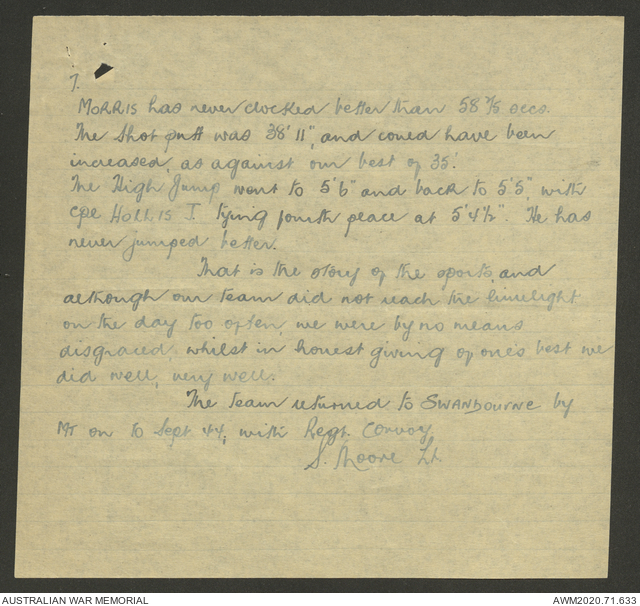 7.
MORRIS has never clocked better than 58 3/5 secs.
The shot putt was 38' 11", and could have been
increased, as against our best of 35'.
The High Jump went to 5'6" and back to 5'5", with
Cpl HOLLIS J. tying fourth place at 5'4½". He has
never jumped better.
That is the story of the sports, and
although our team did not reach the limelight
on the day too often, we were by no means
disgraced, whilst in honest giving of one's best we
did well, very well.
The team returned to SWANBOURNE by
MT on 10 Sept 44, with Regt. Convoy.
S. Moore Lt.
AUSTRALIAN WAR MEMORIAL
AWM2020.71.633